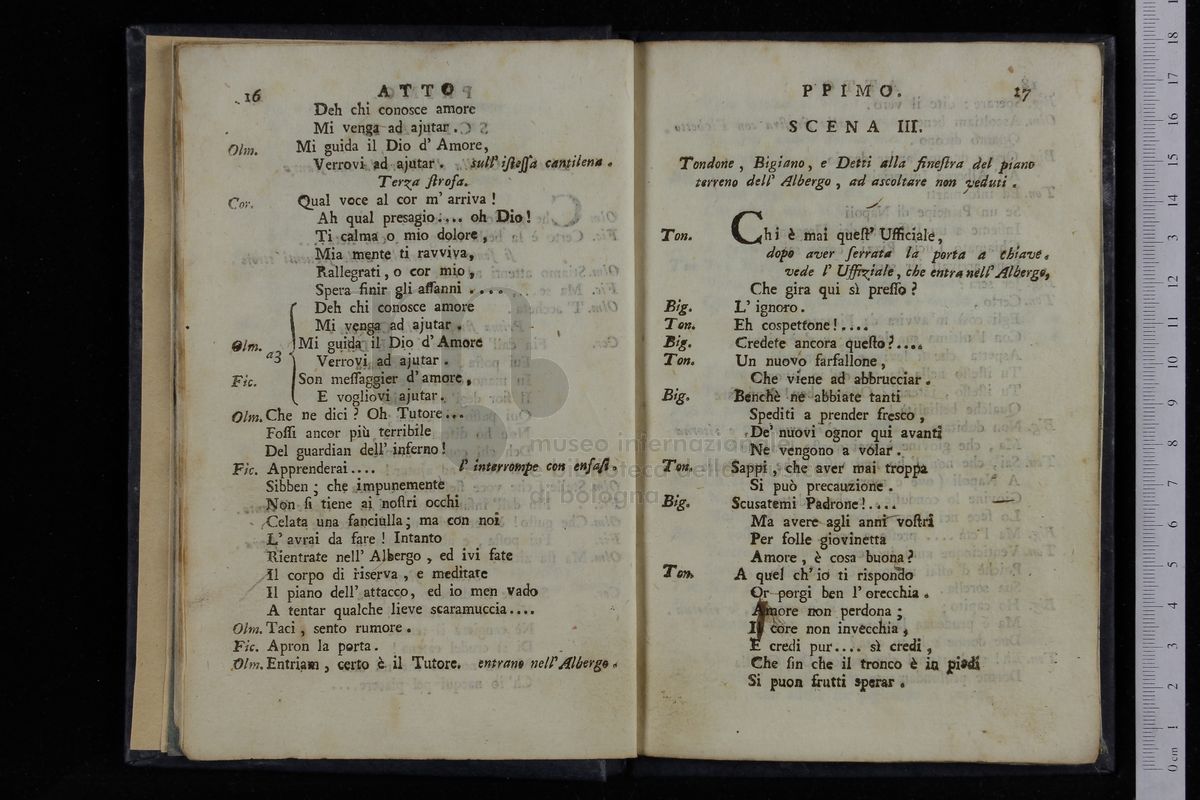 16
ATTO
Deh chi conosce amore
Mi venga ad ajutar.
Olm. Mi guida il Dio d' Amore,
Verrovi ad ajutar. sull' istessa cantilena.
Terza strofa.
Cor. Qual voce al cor m' arriva!
Ah qual presagio.... oh Dio!
Ti calma o mio dolore,
Mia mente ti ravviva,
Rallegrati, o cor mio,
Spera finir gli affanni ....
Deh chi conosce amore
Mi venga ad ajutar.
Olm. Mi guida il Dio d' Amore
a3 Verrovi ad ajutar.
Fic. Son messaggier d' amore,
E vogliovi ajutar.
Olm. Che ne dici? Oh Tutore...
Fossi ancor più terribile
Del guardian dell' inferno!
Fic. Apprenderai.... l' interrompe con enfasi.
Sibben; che impunemente
Non si tiene ai nostri occhi
Celata una fanciulla; ma con noi
L' avrai da fare! Intanto
Rientrate nell' Albergo, ed ivi fate
Il corpo di riserva, e meditate
Il piano dell' attacco, ed io men vado
A tentar qualche lieve scaramuccia....
Olm. Taci, sento rumore.
Fic. Apron la porta.
Olm. Entriam, certo è il Tutore. entrano nell' Albergo.
PPIMO.
17
SCENA III.
Tondone, Bigiano, e Detti alla finestra del piano
terreno dell' Albergo, ad ascoltare non veduti.
Ton. Chi è mai quest' Ufficiale,
dopo aver serrata la porta a chiave.
vede l' Uffiziale, che entra nell' Albergo,
Che gira qui sì presso?
Big. L' ignoro.
Ton. Eh cospettone!....
Big. Credete ancora questo?....
Ton. Un nuovo farfallone,
Che viene ad abbrucciar.
Big. Benchè ne abbiate tanti
Spediti a prender fresco,
De' nuovi ognor qui avanti
Ne vengono a volar.
Ton. Sappi, che aver mai troppa
Si può precauzione.
Big. Scusatemi Padrone!....
Ma avere agli anni vostri
Per folle giovinetta
Amore, è cosa buona?
Ton. A quel ch' io ti rispondo
Or porgi ben l' orecchia.
Amore non perdona;
Il core non invecchia,
E credi pur.... sì credi,
Che fin che il tronco è in piedi
Si puon frutti sperar.
museo internazionale
di bologna
0 cm 1 2 3 4 5 6 7 8 9 10 11 12 13 14 15 16 17 18